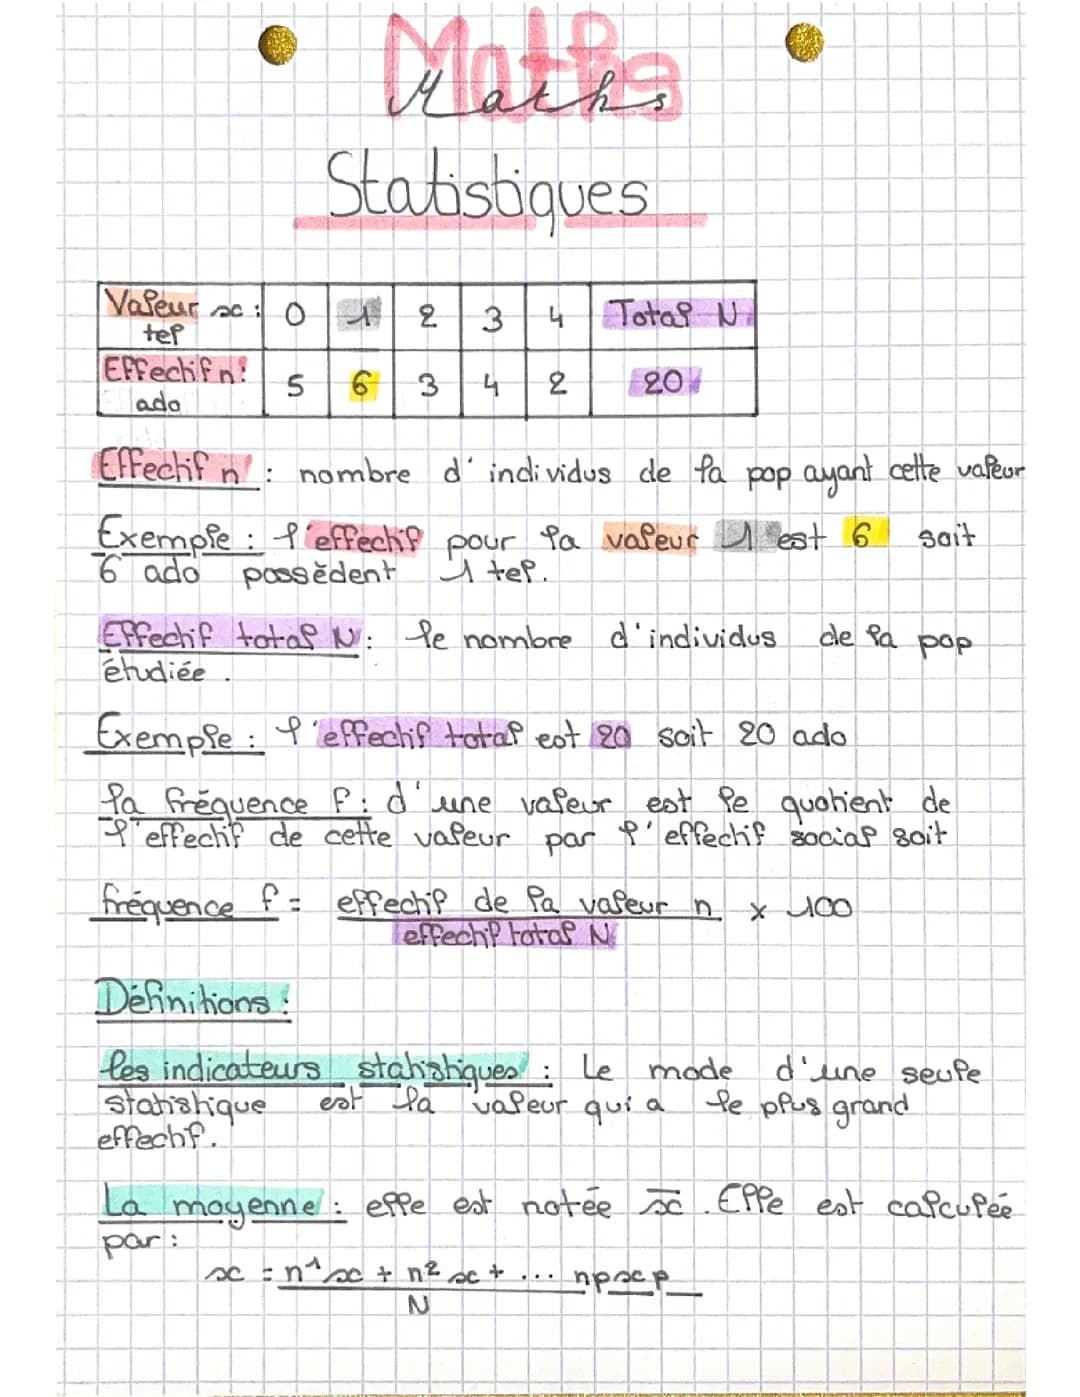 Maths
Maths
Statistiques
Valeur x : 0 1 2 3 4 Total N
tel
Effectif n : 5 6 3 4 2 20
ado
Effectif n : nombre d'individus de la pop ayant cette valeur
Exemple : l'effectif pour la valeur 1 est 6 soit
6 ado possèdent 1 tel.
Effectif total N : le nombre d'individus de la pop
étudiée .
Exemple : l'effectif total est 20 soit 20 ado
la fréquence f : d'une valeur est le quotient de
l'effectif de cette valeur par l'effectif social soit
fréquence f = effectif de la valeur n x 100
effectif total N
Définitions :
les indicateurs statistiques : Le mode d'une seule
statistique est la valeur qui a le plus grand
effectif.
La moyenne : elle est notée x̄ . Elle est calculée
par :
x = n¹x + n²x + ... npxp
N